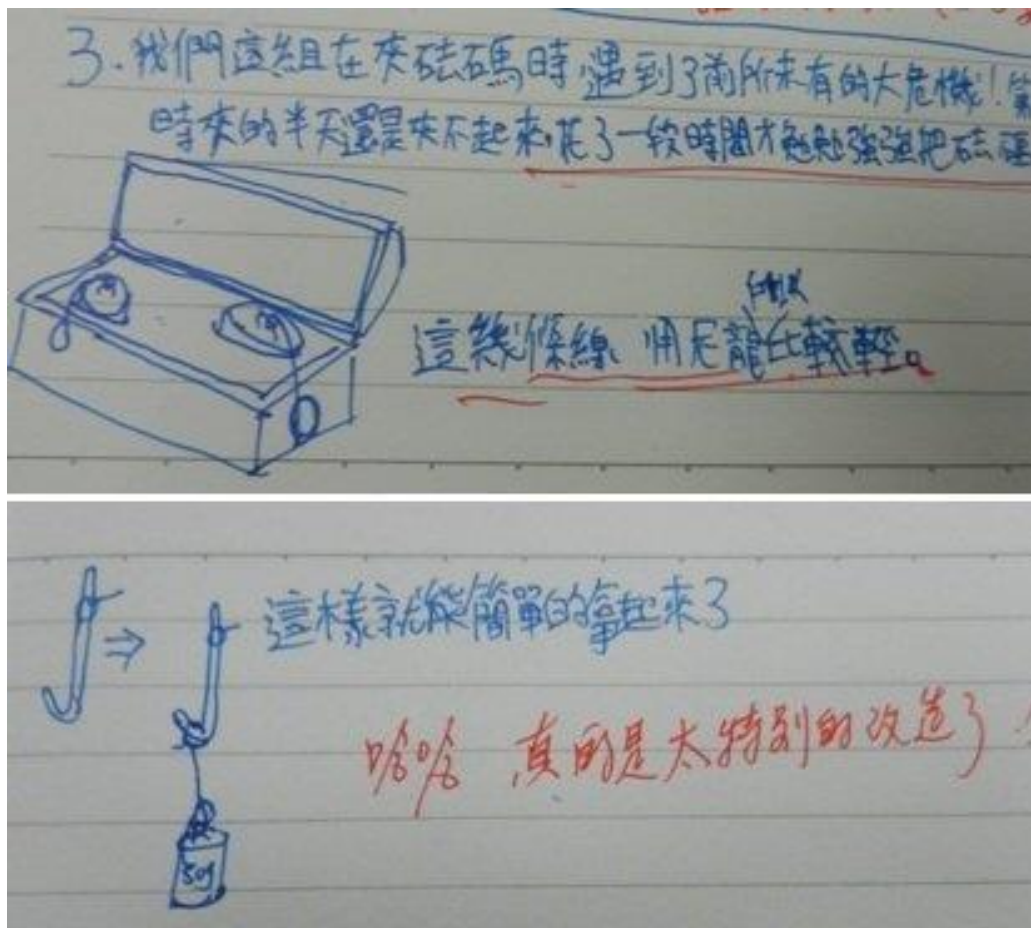 3.我們這組在夾砝碼時,遇到了前所未有的大危機!
時夾的半天還是夾不起來,花了一段時間才勉勉強強把砝碼
這幾條線 用尼龍比較輕。
這樣就能簡單的拿起來了
哈哈 真的是太特別的改造了
50g